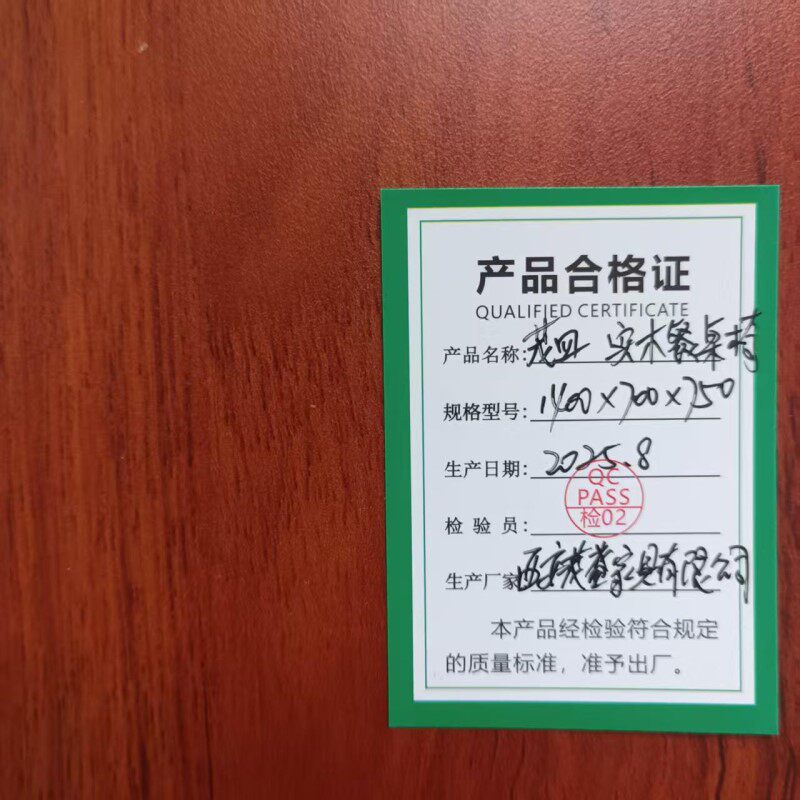 产品合格证
QUALIFIED CERTIFICATE
产品名称: 实木餐桌椅
规格型号: 1400×700×750
生产日期: 2025.8
QC
PASS
检02
检 验 员:
生产厂家 西安 家具有限公司
本产品经检验符合规定
的质量标准，准予出厂。